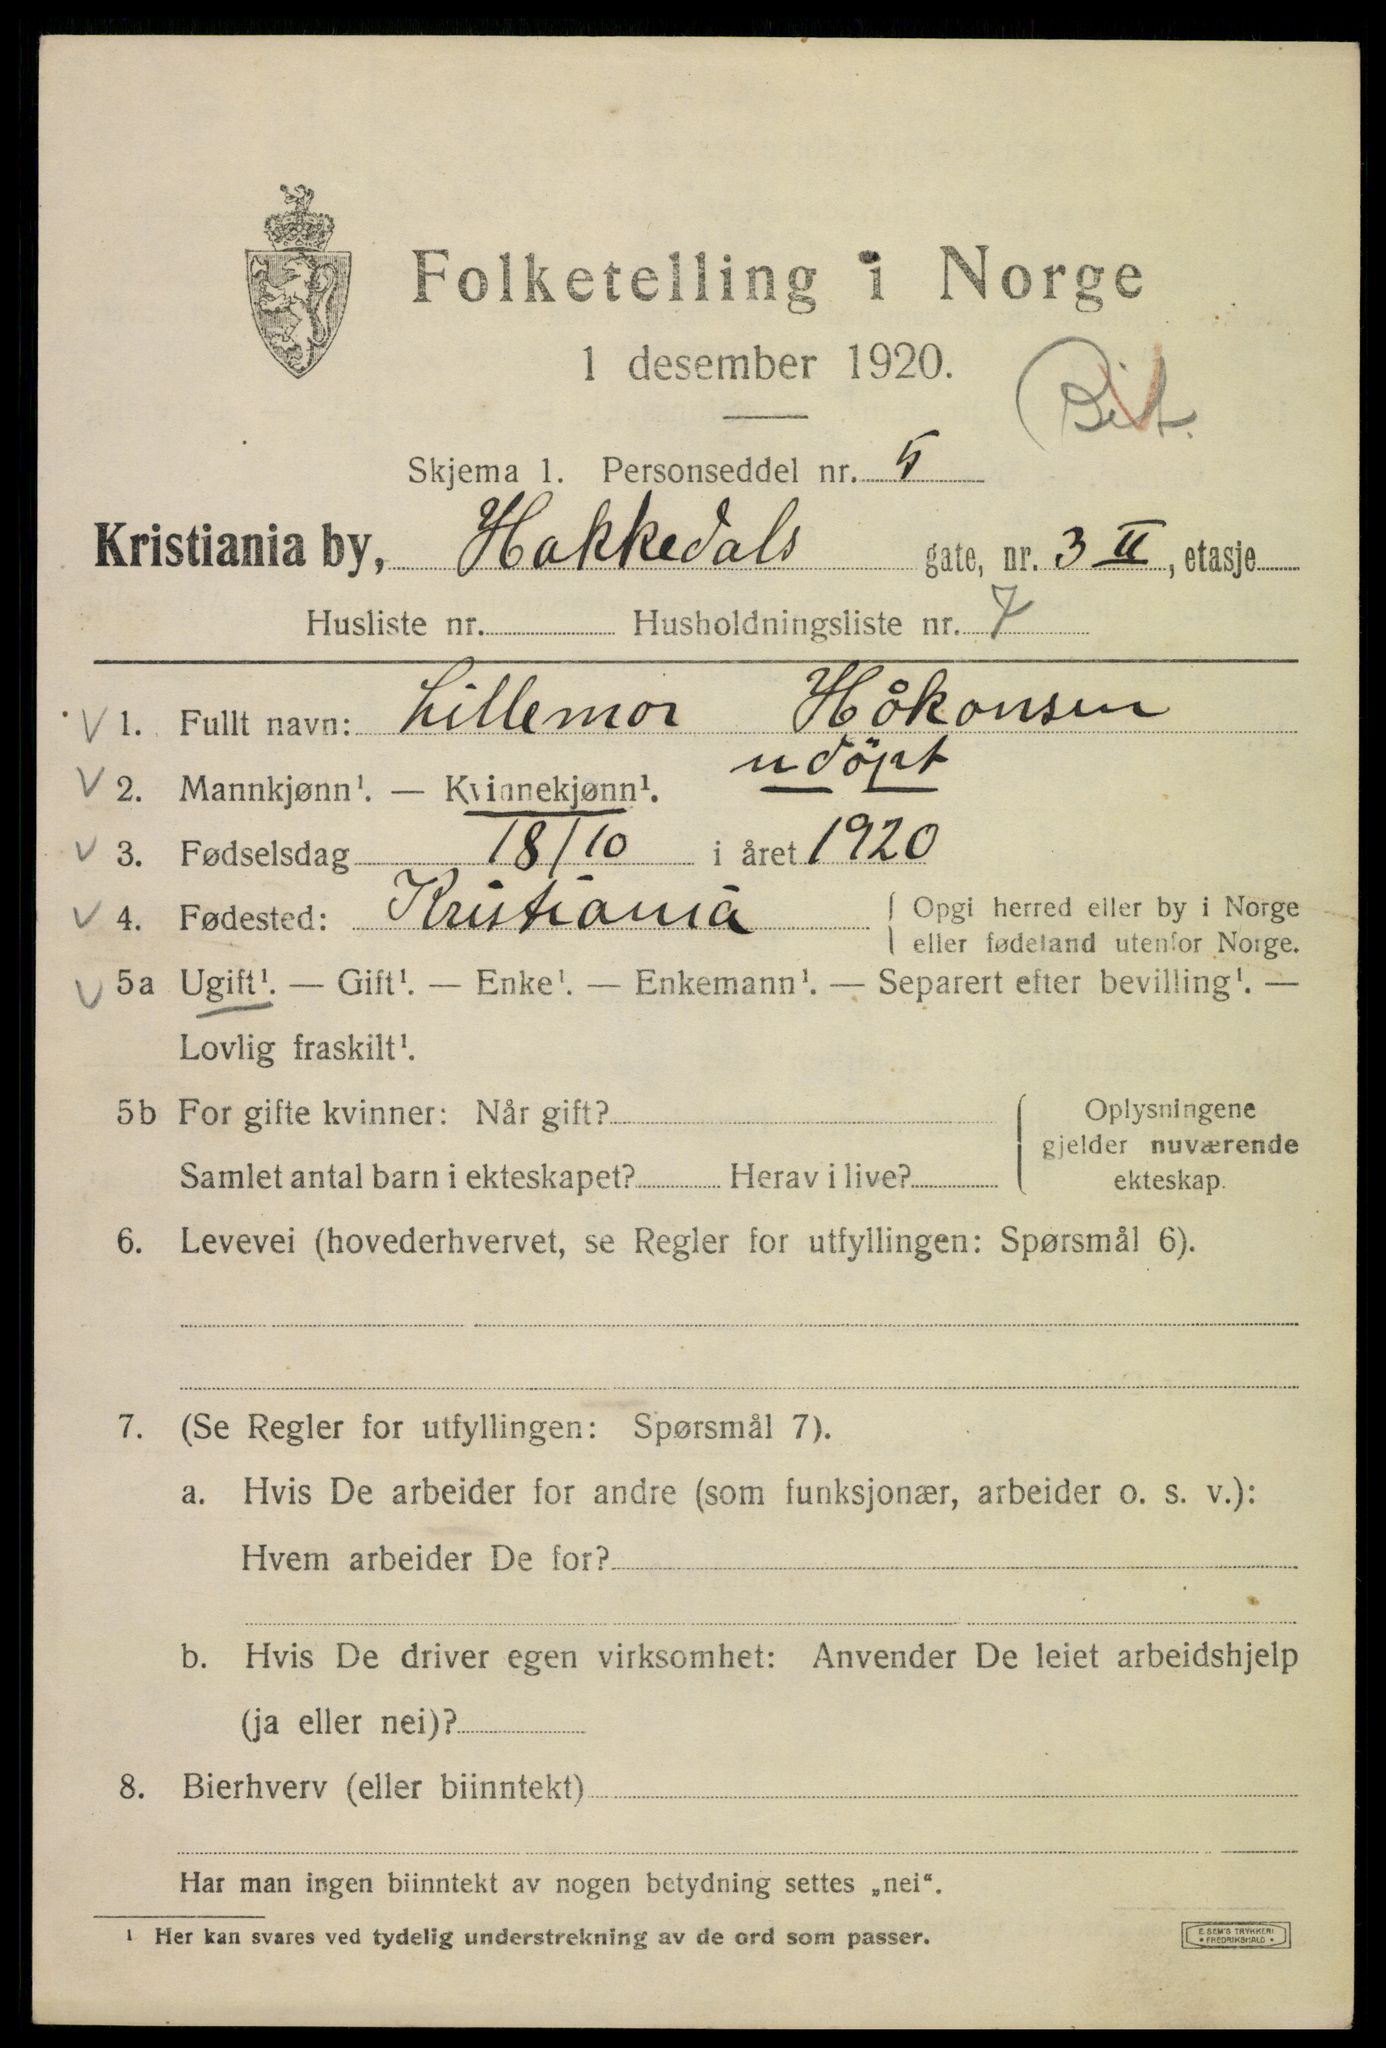 Folketelling i Norge
1 desember 1920.
Skjema 1. Personseddel nr. 5
Kristiania by, Hakkedals gate, nr. 3 II, etasje
Husliste nr. Husholdningsliste nr. 7
V 1. Fullt navn: Lillemor Håkonsen
udöpt
V 2. Mannkjønn¹. — Kvinnekjønn¹.
V 3. Fødselsdag 18/10 i året 1920
V 4. Fødested: Kristiania { Opgi herred eller by i Norge
eller fødeland utenfor Norge.
V 5a Ugift¹. — Gift¹. — Enke¹. — Enkemann¹. — Separert efter bevilling¹. —
Lovlig fraskilt¹.
5b For gifte kvinner: Når gift? { Oplysningene
gjelder nuværende
Samlet antal barn i ekteskapet? Herav i live? ekteskap.
6. Levevei (hovederhvervet, se Regler for utfyllingen: Spørsmål 6).
7. (Se Regler for utfyllingen: Spørsmål 7).
a. Hvis De arbeider for andre (som funksjonær, arbeider o. s. v.):
Hvem arbeider De for?
b. Hvis De driver egen virksomhet: Anvender De leiet arbeidshjelp
(ja eller nei)?
8. Bierhverv (eller biinntekt)
Har man ingen biinntekt av nogen betydning settes „nei“.
¹ Her kan svares ved tydelig understrekning av de ord som passer.
E. SEM'S TRYKKERI
• FREDRIKSHALD •